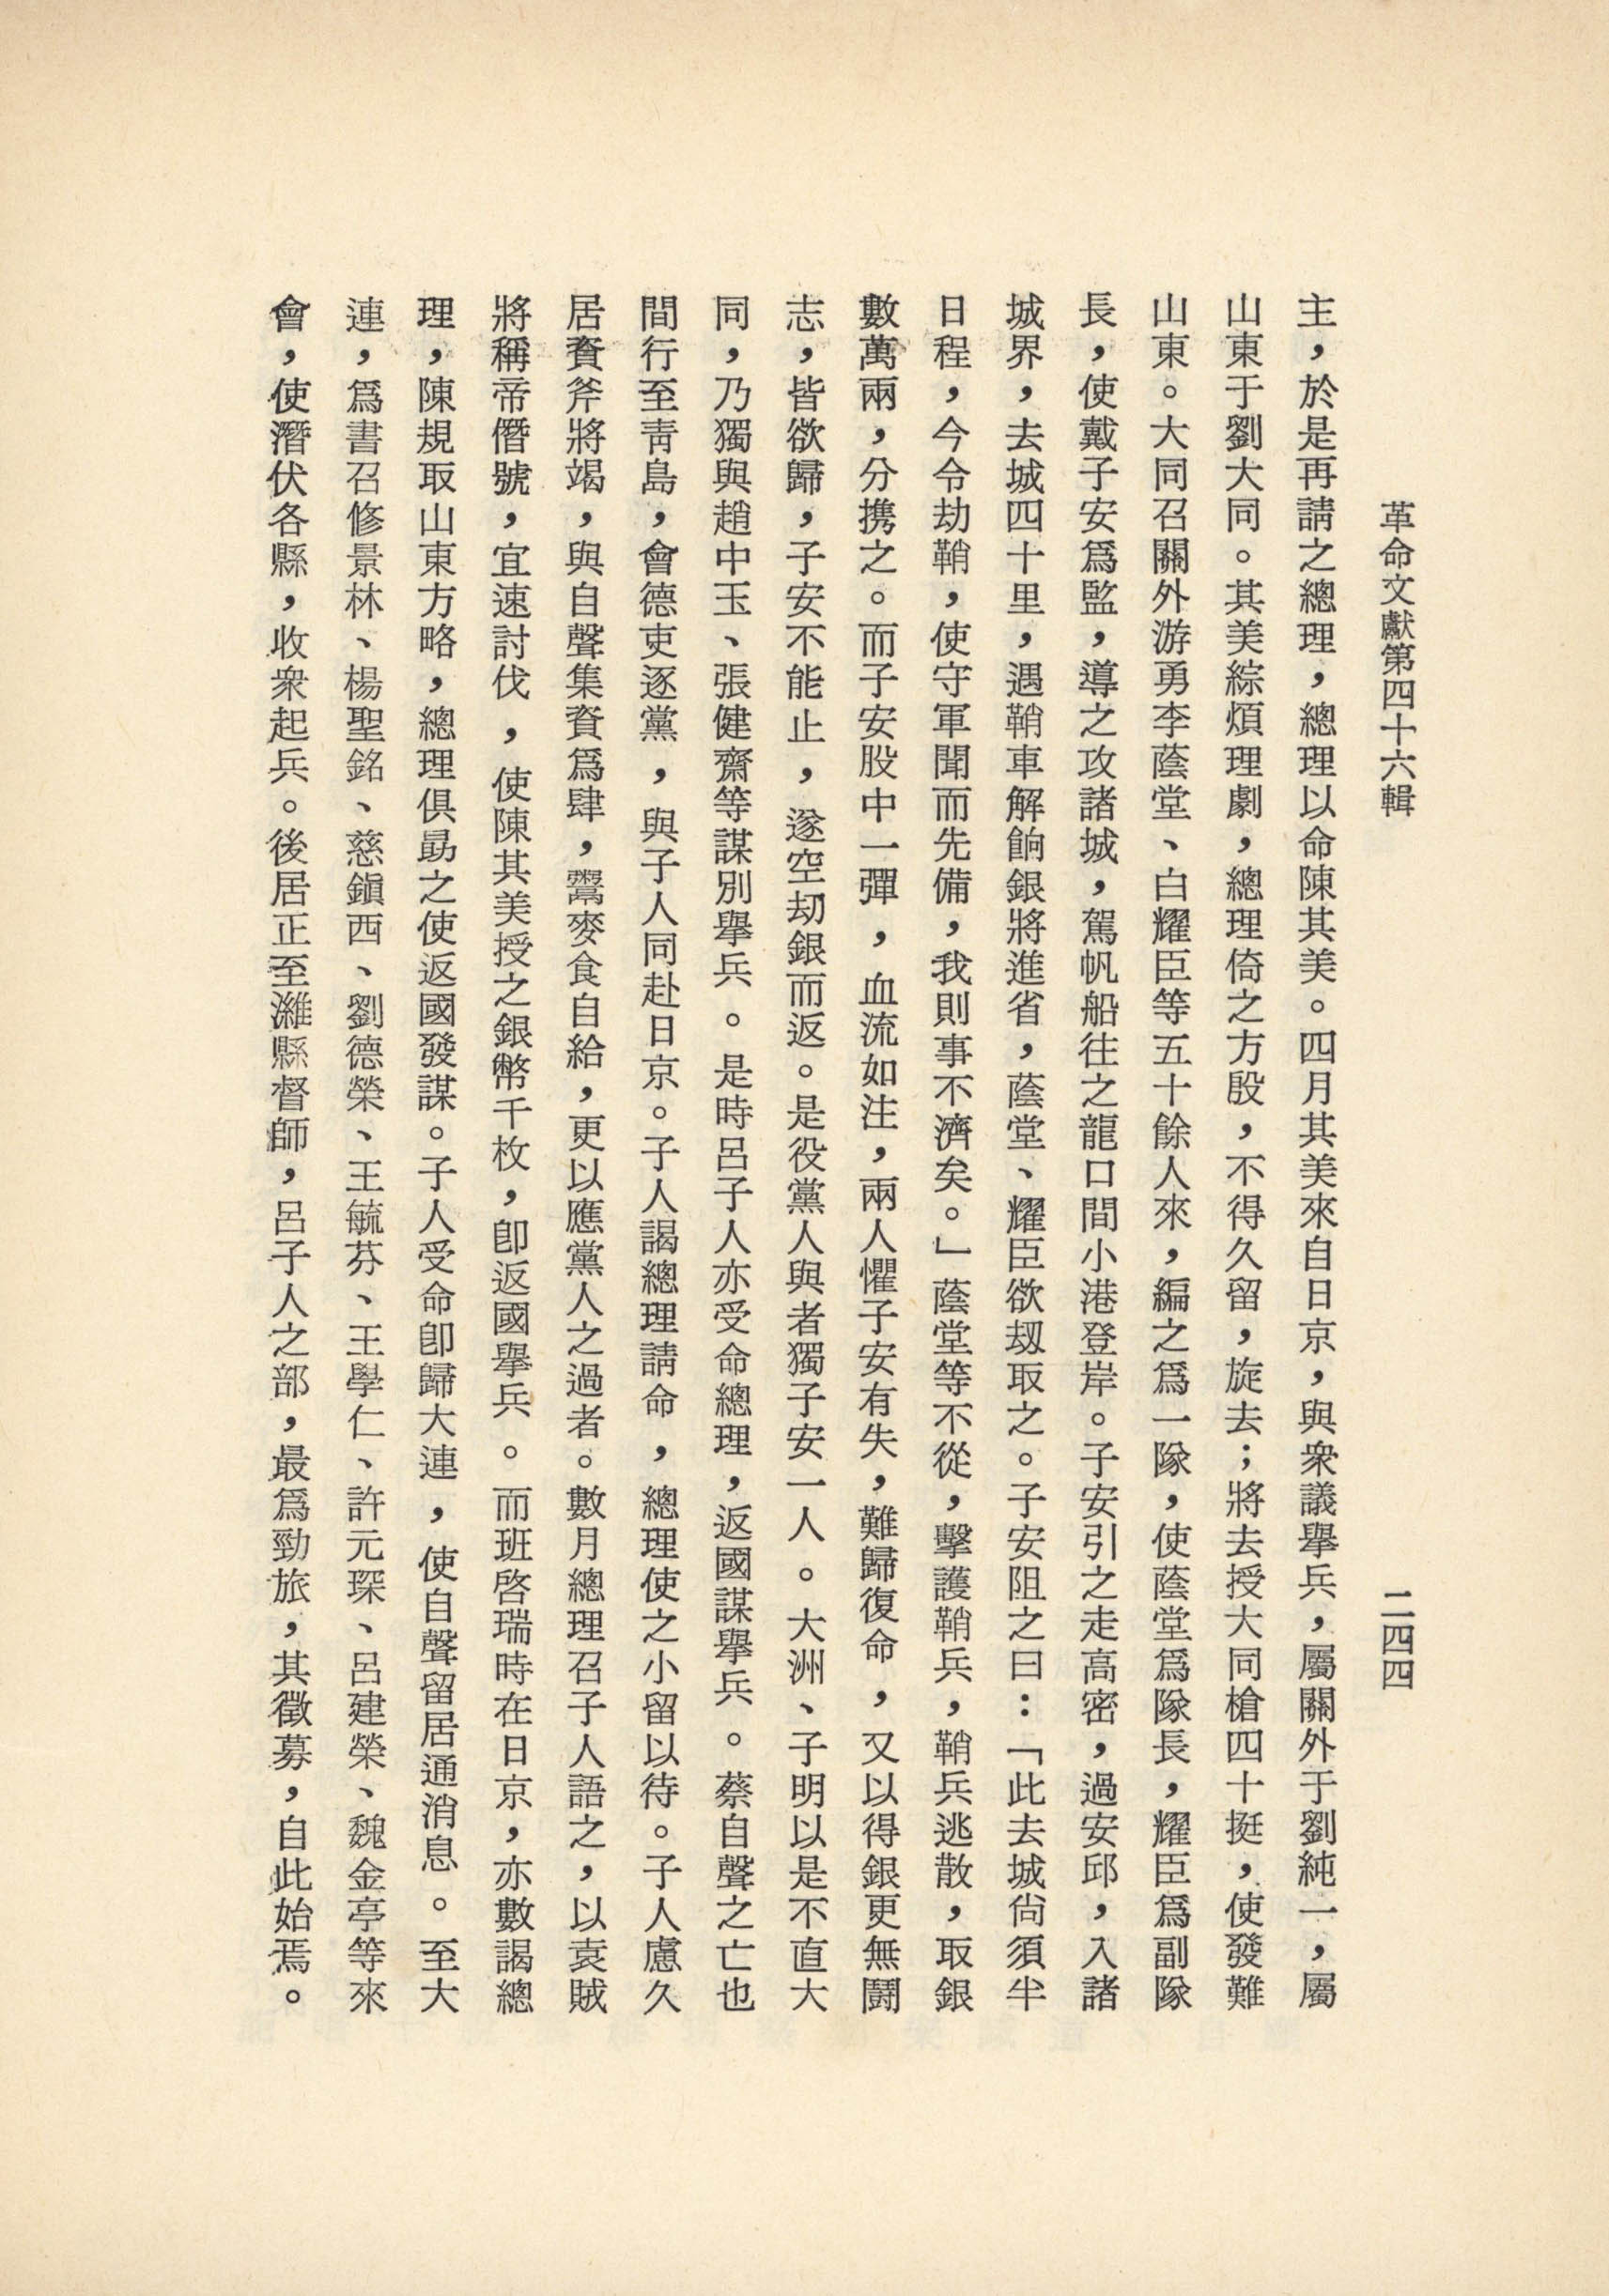 革命文獻第四十六輯
二四四
主，於是再請之總理，總理以命陳其美。四月其美來自日京，與衆議舉兵，屬關外于劉純一，屬
山東于劉大同。其美綜煩理劇，總理倚之方殷，不得久留，旋去；將去授大同槍四十挺，使發難
山東。大同召關外游勇李蔭堂、白耀臣等五十餘人來，編之爲一隊，使蔭堂爲隊長，耀臣爲副隊
長，使戴子安爲監，導之攻諸城，駕帆船往之龍口間小港登岸。子安引之走高密，過安邱，入諸
城界，去城四十里，遇鞘車解餉銀將進省，蔭堂、耀臣欲刼取之。子安阻之曰：「此去城尙須半
日程，今令劫鞘，使守軍聞而先備，我則事不濟矣。」蔭堂等不從，擊護鞘兵，鞘兵逃散，取銀
數萬兩，分携之。而子安股中一彈，血流如注，兩人懼子安有失，難歸復命，又以得銀更無鬪
志，皆欲歸，子安不能止，遂空刧銀而返。是役黨人與者獨子安一人。大洲、子明以是不直大
同，乃獨與趙中玉、張健齋等謀別舉兵。是時呂子人亦受命總理，返國謀舉兵。蔡自聲之亡也
間行至靑島，會德吏逐黨，與子人同赴日京。子人謁總理請命，總理使之小留以待。子人慮久
居資斧將竭，與自聲集資爲肆，鬻麥食自給，更以應黨人之過者。數月總理召子人語之，以袁賊
將稱帝僭號，宜速討伐，使陳其美授之銀幣千枚，卽返國舉兵。而班啓瑞時在日京，亦數謁總
理，陳規取山東方略，總理俱勗之使返國發謀。子人受命卽歸大連，使自聲留居通消息。至大
連，爲書召修景林、楊聖銘、慈鎭西、劉德榮、王毓芬、王學仁、許元琛、呂建榮、魏金亭等來
會，使潛伏各縣，收衆起兵。後居正至濰縣督師，呂子人之部，最爲勁旅，其徵募，自此始焉。